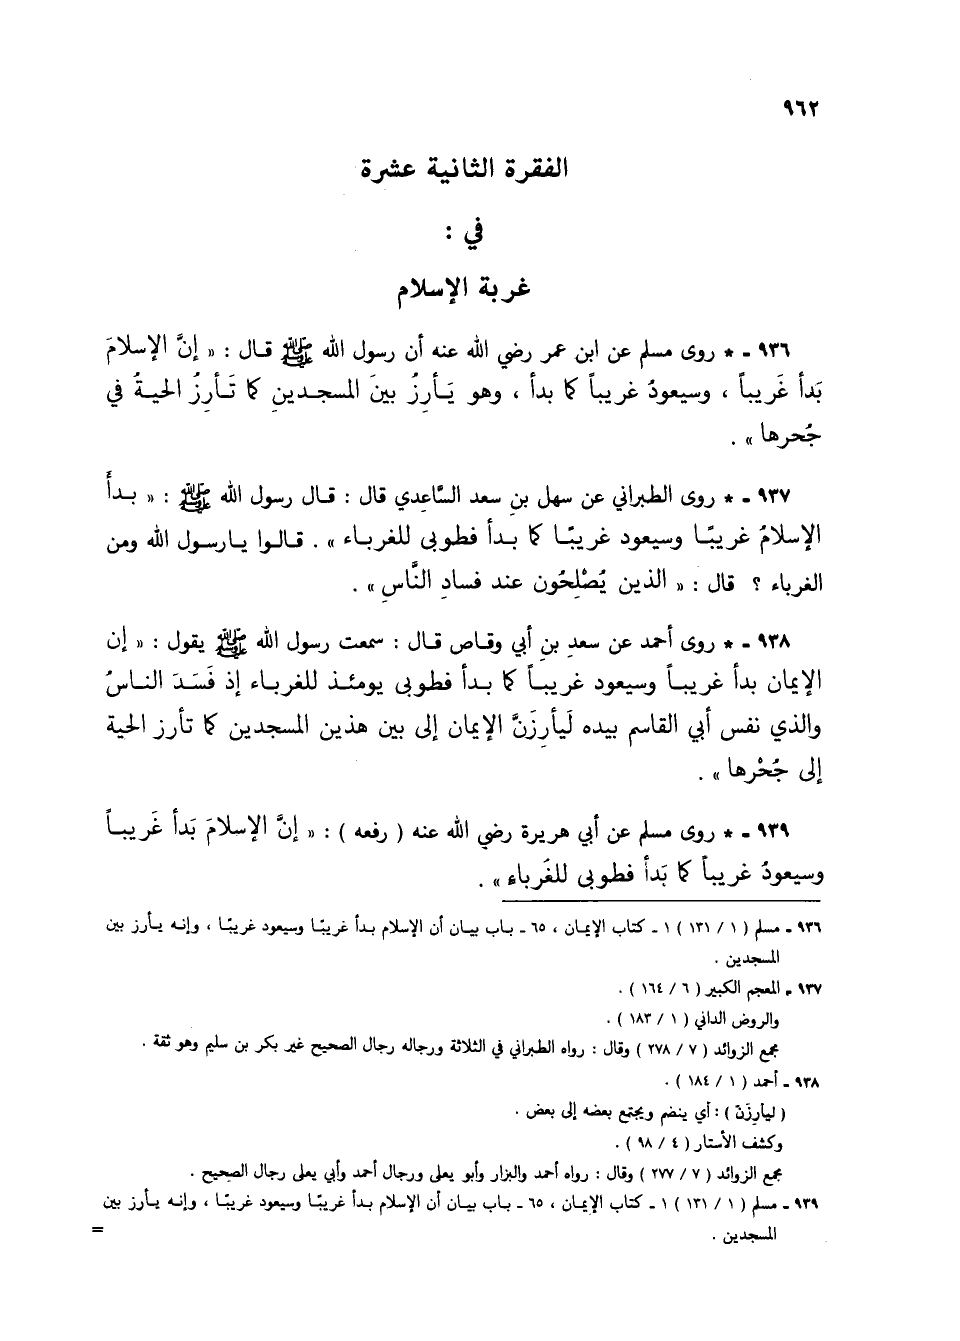 ٩٦٢
الفقرة الثانية عشرة
في :
غربة الإسلام
٩٣٦ ـ * روى مسلم عن ابن عمر رضي الله عنه أن رسول الله ﷺ قال : « إنَّ الإسلامَ
بَدأ غَريباً ، وسيعودُ غريباً كما بدأ ، وهو يَـأرِزُ بينَ المسجـدينِ كما تَـأرِزُ الحيـةُ في
جُحرِها » .
٩٣٧ ـ * روى الطبراني عن سهل بنِ سعد السَّاعِدي قال : قـال رسول الله ﷺ : « بـدأَ
الإسلامُ غريبًـا وسيعود غريبًـا كما بـدأ فطوبى للغربـاء » . قـالـوا يـارسـول الله ومن
الغرباء ؟ قال : « الذين يُصْلِحُون عند فسادِ النَّاسِ » .
٩٣٨ ـ * روى أحمد عن سعدِ بنِ أبي وقـاص قـال : سمعت رسول الله ﷺ يقول : « إن
الإيمان بدأ غريبـاً وسيعود غريبـاً كما بـدأ فطوبى يومئـذ للغربـاء إذ فَسَـدَ النـاسُ
والذي نفس أبي القاسم بيده لَيأرِزَنَّ الإيمان إلى بين هذين المسجدين كما تأرز الحية
إلى جُحْرِها » .
٩٣٩ ـ * روى مسلم عن أبي هريرة رضي الله عنه ( رفعه ) : « إنَّ الإسلامَ بَدأ غَريبـاً
وسيعودُ غريباً كما بَدأ فطوبى للغَرباء » .
٩٣٦ ـ مسلم ( ١ / ١٣١ ) ١ ـ كتاب الإيمـان ، ٦٥ ـ بـاب بيـان أن الإسلام بـدأ غريبًـا وسيعود غريبًـا ، وإنـه يـأرز بين
المسجدين .
٩٣٧ ـ المعجم الكبير ( ٦ / ١٦٤ ) .
والروض الداني ( ١ / ١٨٣ ) .
مجمع الزوائد ( ٧ / ٢٧٨ ) وقال : رواه الطبراني في الثلاثة ورجاله رجال الصحيح غير بكر بن سليم وهو ثقة .
٩٣٨ ـ أحمد ( ١ / ١٨٤ ) .
( ليأرِزَنّ ) : أي ينضم ويجتمع بعضه إلى بعض .
وكشف الأستار ( ٤ / ٩٨ ) .
مجمع الزوائد ( ٧ / ٢٧٧ ) وقال : رواه أحمد والبزار وأبو يعلى ورجال أحمد وأبي يعلى رجال الصحيح .
٩٣٩ ـ مسلم ( ١ / ١٣١ ) ١ ـ كتاب الإيمـان ، ٦٥ ـ بـاب بيـان أن الإسلام بـدأ غريبًـا وسيعود غريبًـا ، وإنـه يـأرز بين
المسجدين .
=